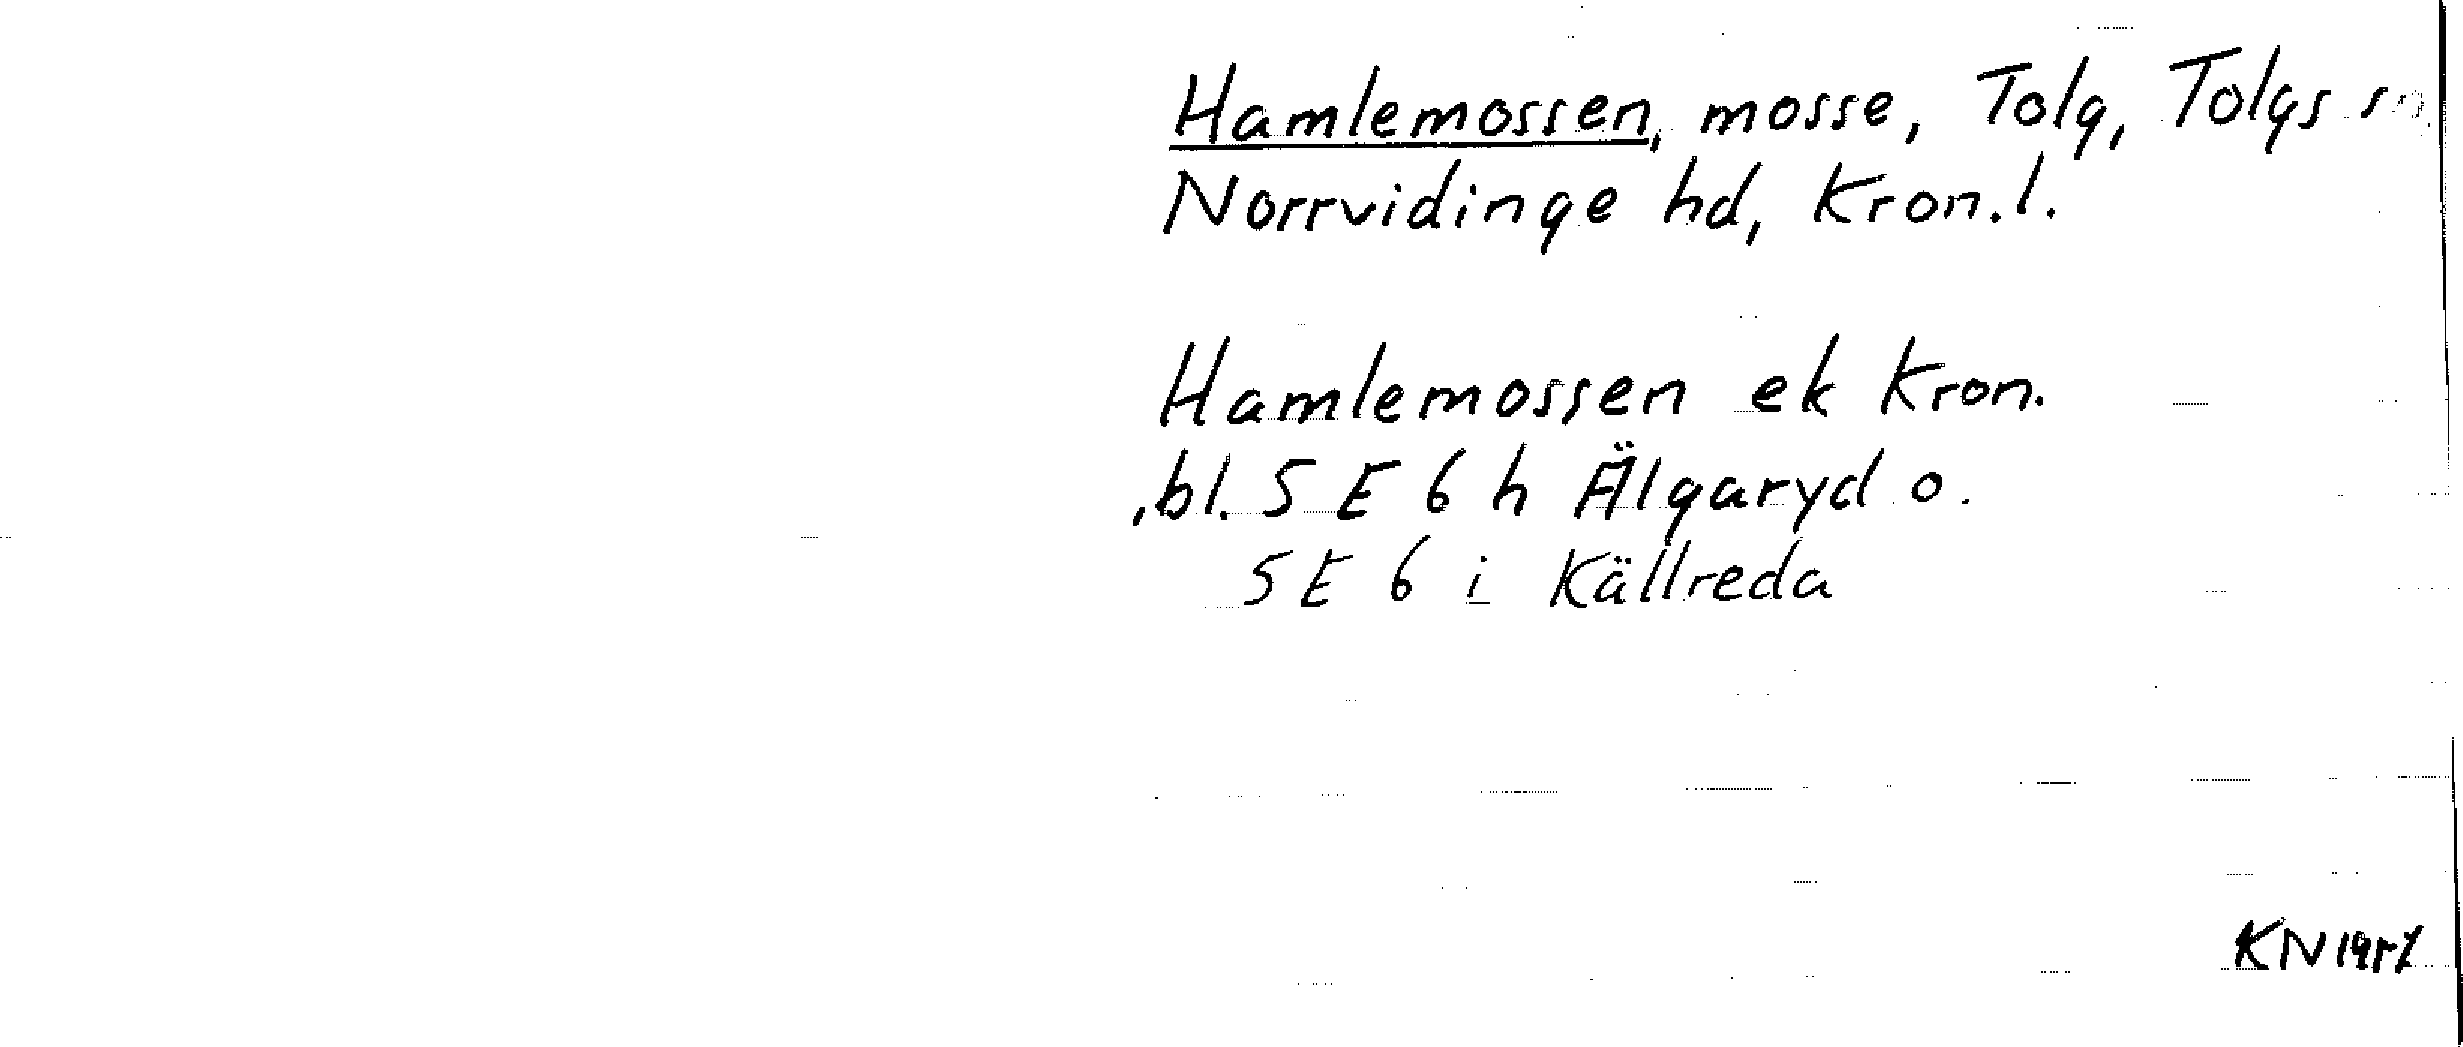 Hamlemossen, mosse, Tolg, Tolgs sn,
Norrvidinge hd, Kron.l.
Hamlemossen ek Kron.
bl. 5 E 6 h Älgaryd o.
5 E 6 i Källreda
KN